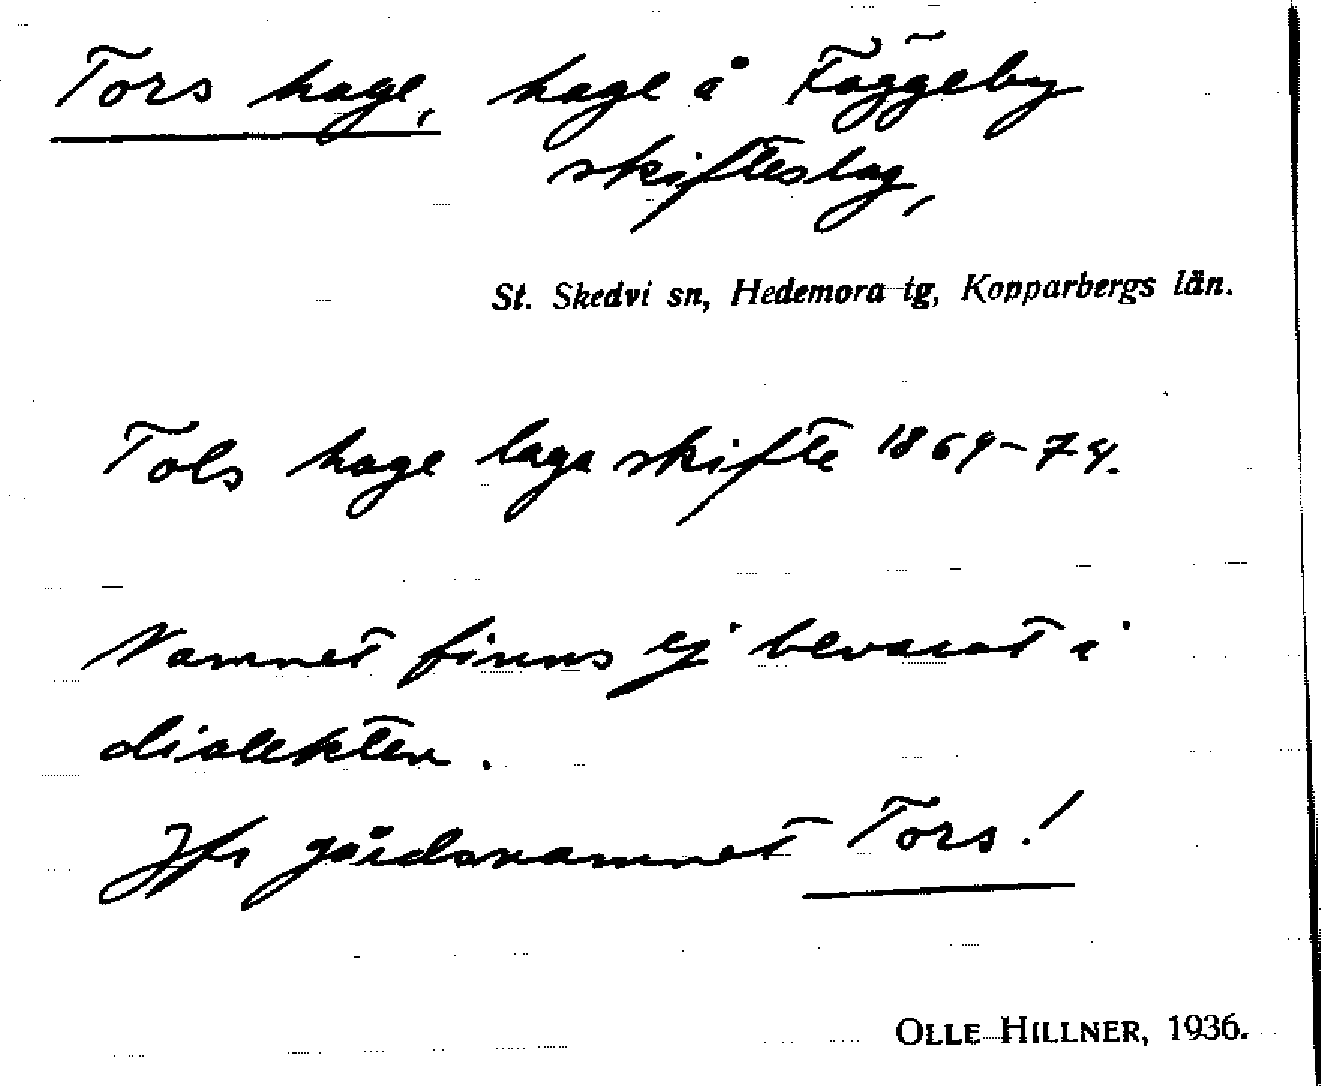 Tors hage, hage å Fäggeby
skifteslag,
St. Skedvi sn, Hedemora tg, Kopparbergs län.
Tols hage laga skifte 1869-74.
Namnet finns ej bevarat i
dialekten.
Jfr gårdsnamnet Tors!
OLLE HILLNER, 1936.